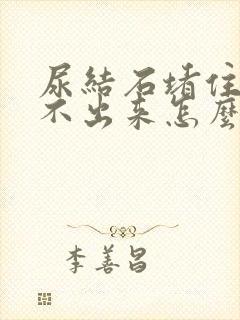 尿結石堵住
不出来怎麽
李善昌